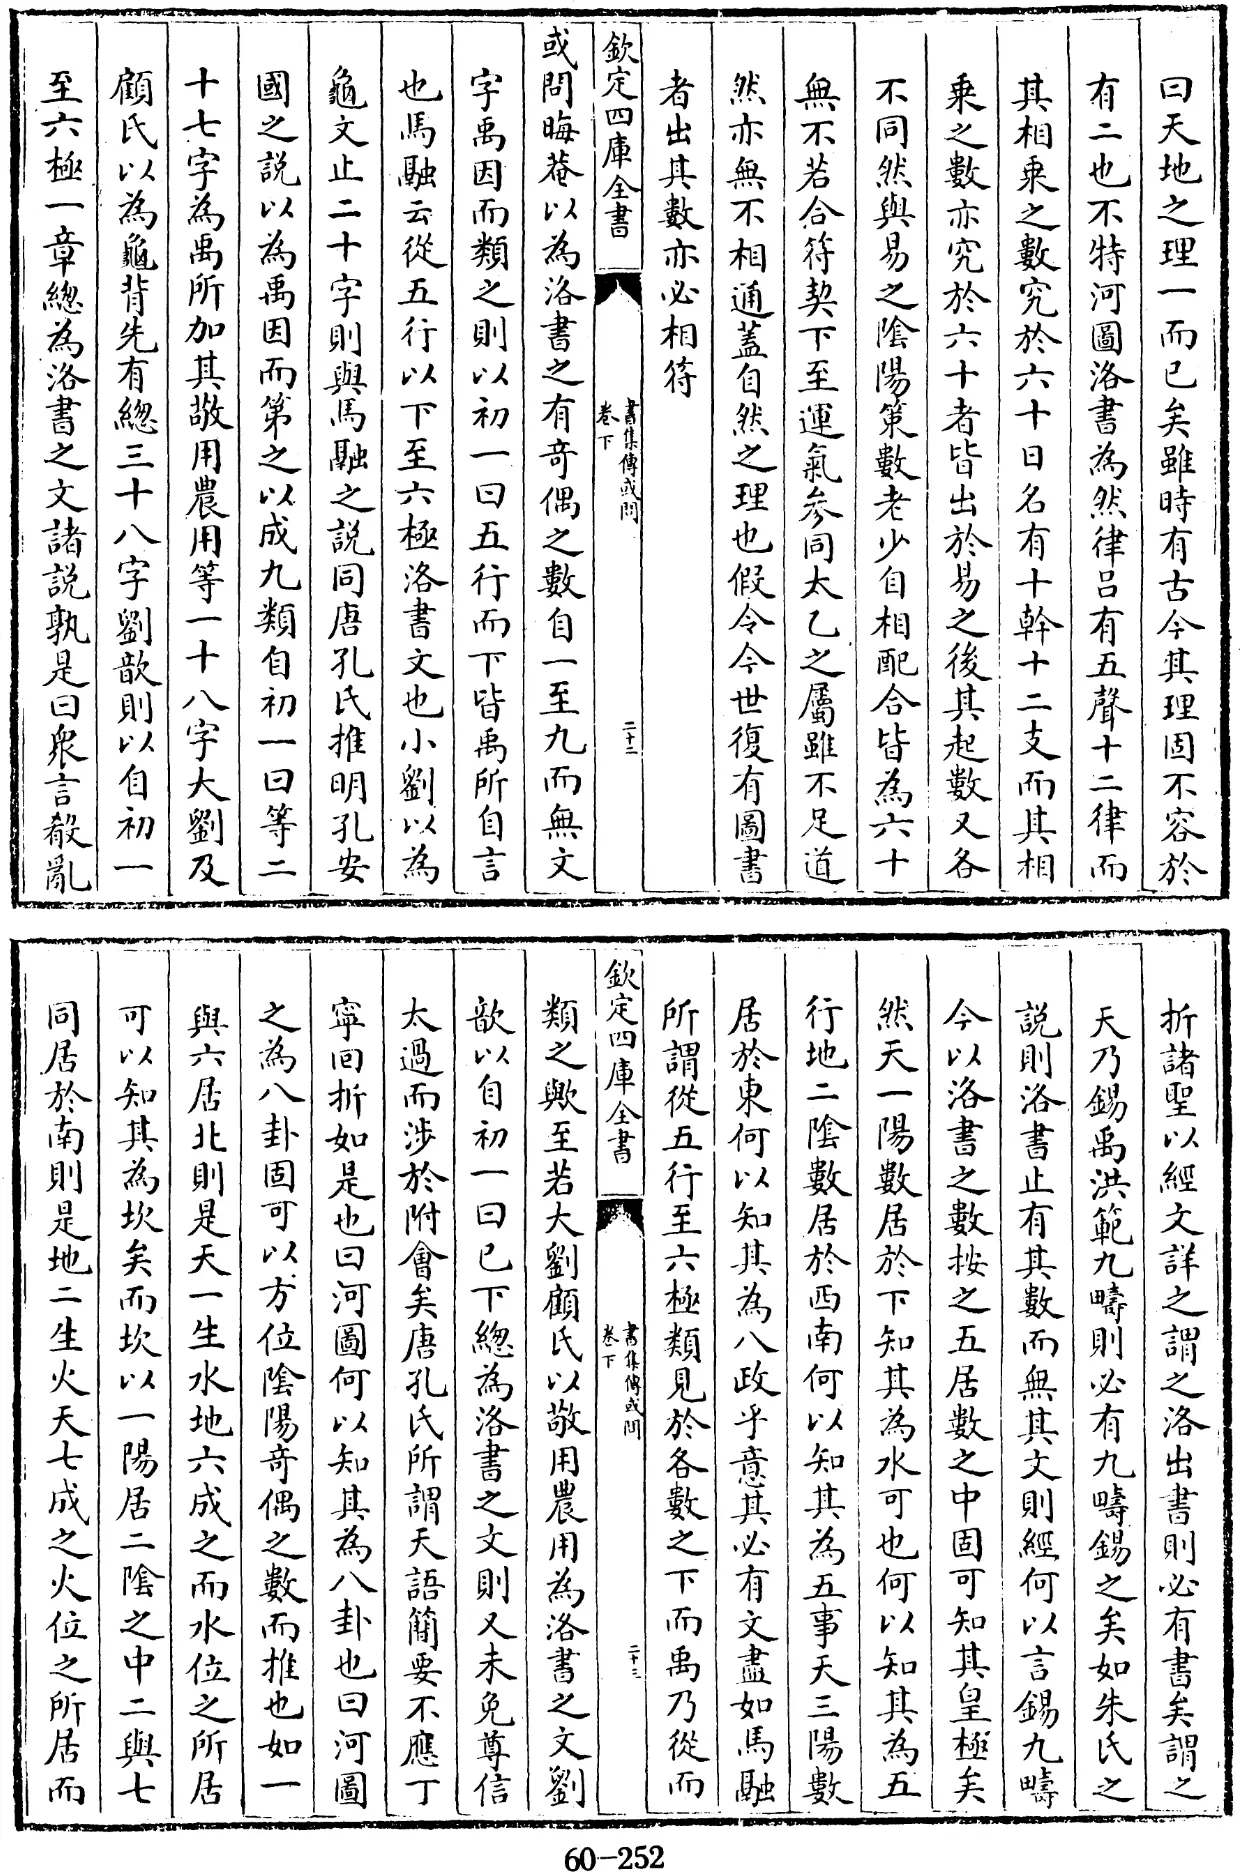 曰天地之理一而已矣雖時有古今其理固不容於
有二也不特河圖洛書為然律吕有五聲十二律而
其相乗之數究於六十日名有十幹十二支而其相
乗之數亦究於六十者皆出於易之後其起數又各
不同然與易之隂陽策數老少自相配合皆為六十
無不若合符契下至運氣參同太乙之屬雖不足道
然亦無不相通葢自然之理也假令今世復有圖書
者出其數亦必相符
欽定四庫全書
書集傳或問
卷下
二十二
或問晦菴以為洛書之有竒偶之數自一至九而無文
字禹因而類之則以初一曰五行而下皆禹所自言
也馬融云從五行以下至六極洛書文也小劉以為
龜文止二十字則與馬融之説同唐孔氏推明孔安
國之説以為禹因而第之以成九類自初一曰等二
十七字為禹所加其敬用農用等一十八字大劉及
顧氏以為龜背先有緫三十八字劉歆則以自初一
至六極一章緫為洛書之文諸説孰是曰衆言殽亂
折諸聖以經文詳之謂之洛出書則必有書矣謂之
天乃錫禹洪範九疇則必有九疇錫之矣如朱氏之
説則洛書止有其數而無其文則經何以言錫九疇
今以洛書之數按之五居數之中固可知其皇極矣
然天一陽數居於下知其為水可也何以知其為五
行地二隂數居於西南何以知其為五事天三陽數
居於東何以知其為八政乎意其必有文盡如馬融
所謂從五行至六極類見於各數之下而禹乃從而
欽定四庫全書
書集傳或問
卷下
二十三
類之歟至若大劉顧氏以敬用農用為洛書之文劉
歆以自初一曰已下緫為洛書之文則又未免尊信
太過而涉於附會矣唐孔氏所謂天語簡要不應丁
寧回折如是也曰河圖何以知其為八卦也曰河圖
之為八卦固可以方位隂陽竒偶之數而推也如一
與六居北則是天一生水地六成之而水位之所居
可以知其為坎矣而坎以一陽居二隂之中二與七
同居於南則是地二生火天七成之火位之所居而
60-252